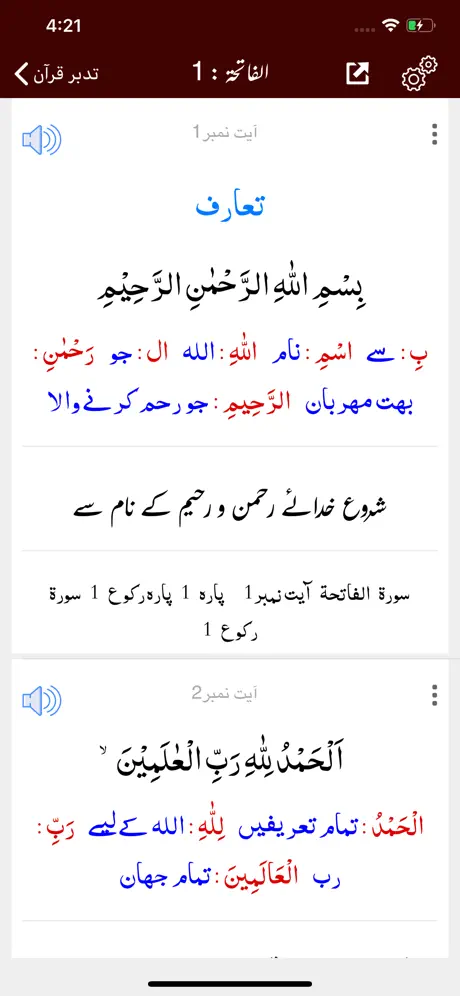 4:21
تدبر قرآن
الفاتحۃ : 1
آیت نمبر1
تعارف
بِسْمِ اللّٰهِ الرَّحْمٰنِ الرَّحِيْمِ
بِ:سے اسْمِ:نام اللّٰهِ:الله ال:جو رَحْمٰنِ:
بهت مهربان الرَّحِيمِ:جو رحم كرنے والا
شروع خدائے رحمن و رحیم کے نام سے
سورة الفاتحة آیت نمبر1 پاره 1 پاره رکوع 1 سورة
رکوع 1
آیت نمبر2
اَلْحَمْدُ لِلّٰهِ رَبِّ الْعٰلَمِيْنَ ۙ
الْحَمْدُ:تمام تعریفیں لِلّٰهِ:الله کے لیے رَبِّ:
رب الْعَالَمِينَ:تمام جهان